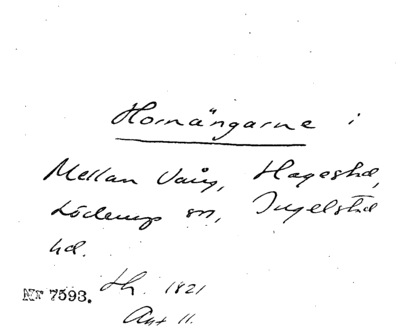 Hornängarne i
Mellan Vång, Hagestad,
Löderup sn, Ingelstad
hd.
Nr 7593. Lh. 1821
Akt 11.